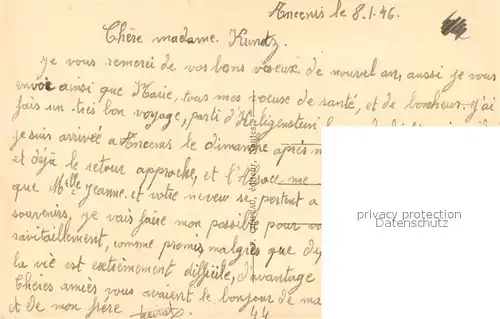 Ancenis le 8.1.46.
Chère madame Kuntz.
je vous remerci de vos bons voeux de nouvel an, aussi je vous
envoi ainsi que Marie, tous mes voeuse de santé, et de bonheur. j'ai
fais un très bon voyage, parti d'Heiligenstein
je suis arrivée a Ancenis le dimanche après
et déjà le retour approche, et l'Alsace me
que Melle Jeanne et votre neveu se portent a
souvenirs, je vais faire mon possible pour
ravitaillement, comme promis malgrés que
la vie est extrèmement difficile, davantage
Chères amies vous avaient le bonjour de ma
et de mon frère.
44
privacy protection
Datenschutz